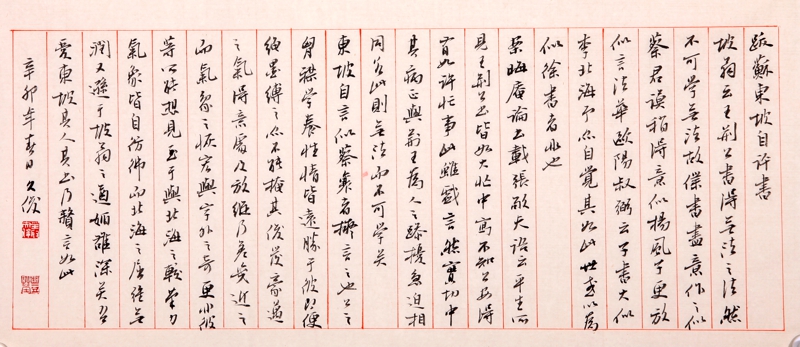 跋蘇東坡自許書
坡翁云王荆公書得無法之法然
不可學無法故僕書盡意作之似
蔡君謨稍得意似楊風子更放
似言法華歐陽叔弼云子書大似
李北海予亦自覺其如此世或以爲
似徐書者非也
案晦庵論書載張敬夫語云平生所
見王荆公書皆如大忙中寫不知公安得
有如許忙事此雖戲言然實切中
其病正與荆王爲人之躁擾急迫相
同若此則無法而不可學矣
東坡自言似蔡襄者擬言之也公之
胸襟學養性情皆遠勝于彼即便
繩墨縛之亦不能掩其俊發豪邁
之氣得意處及放縱乃差矣近之
而氣象之恢宏與字外之奇更非彼
等所能想見至于與北海之較筆力
氣象皆自彷彿而北海之
潤又遜于坡翁之遒媚雄深矣
愛東坡其人其書乃贅言如此
辛卯年春日久俊